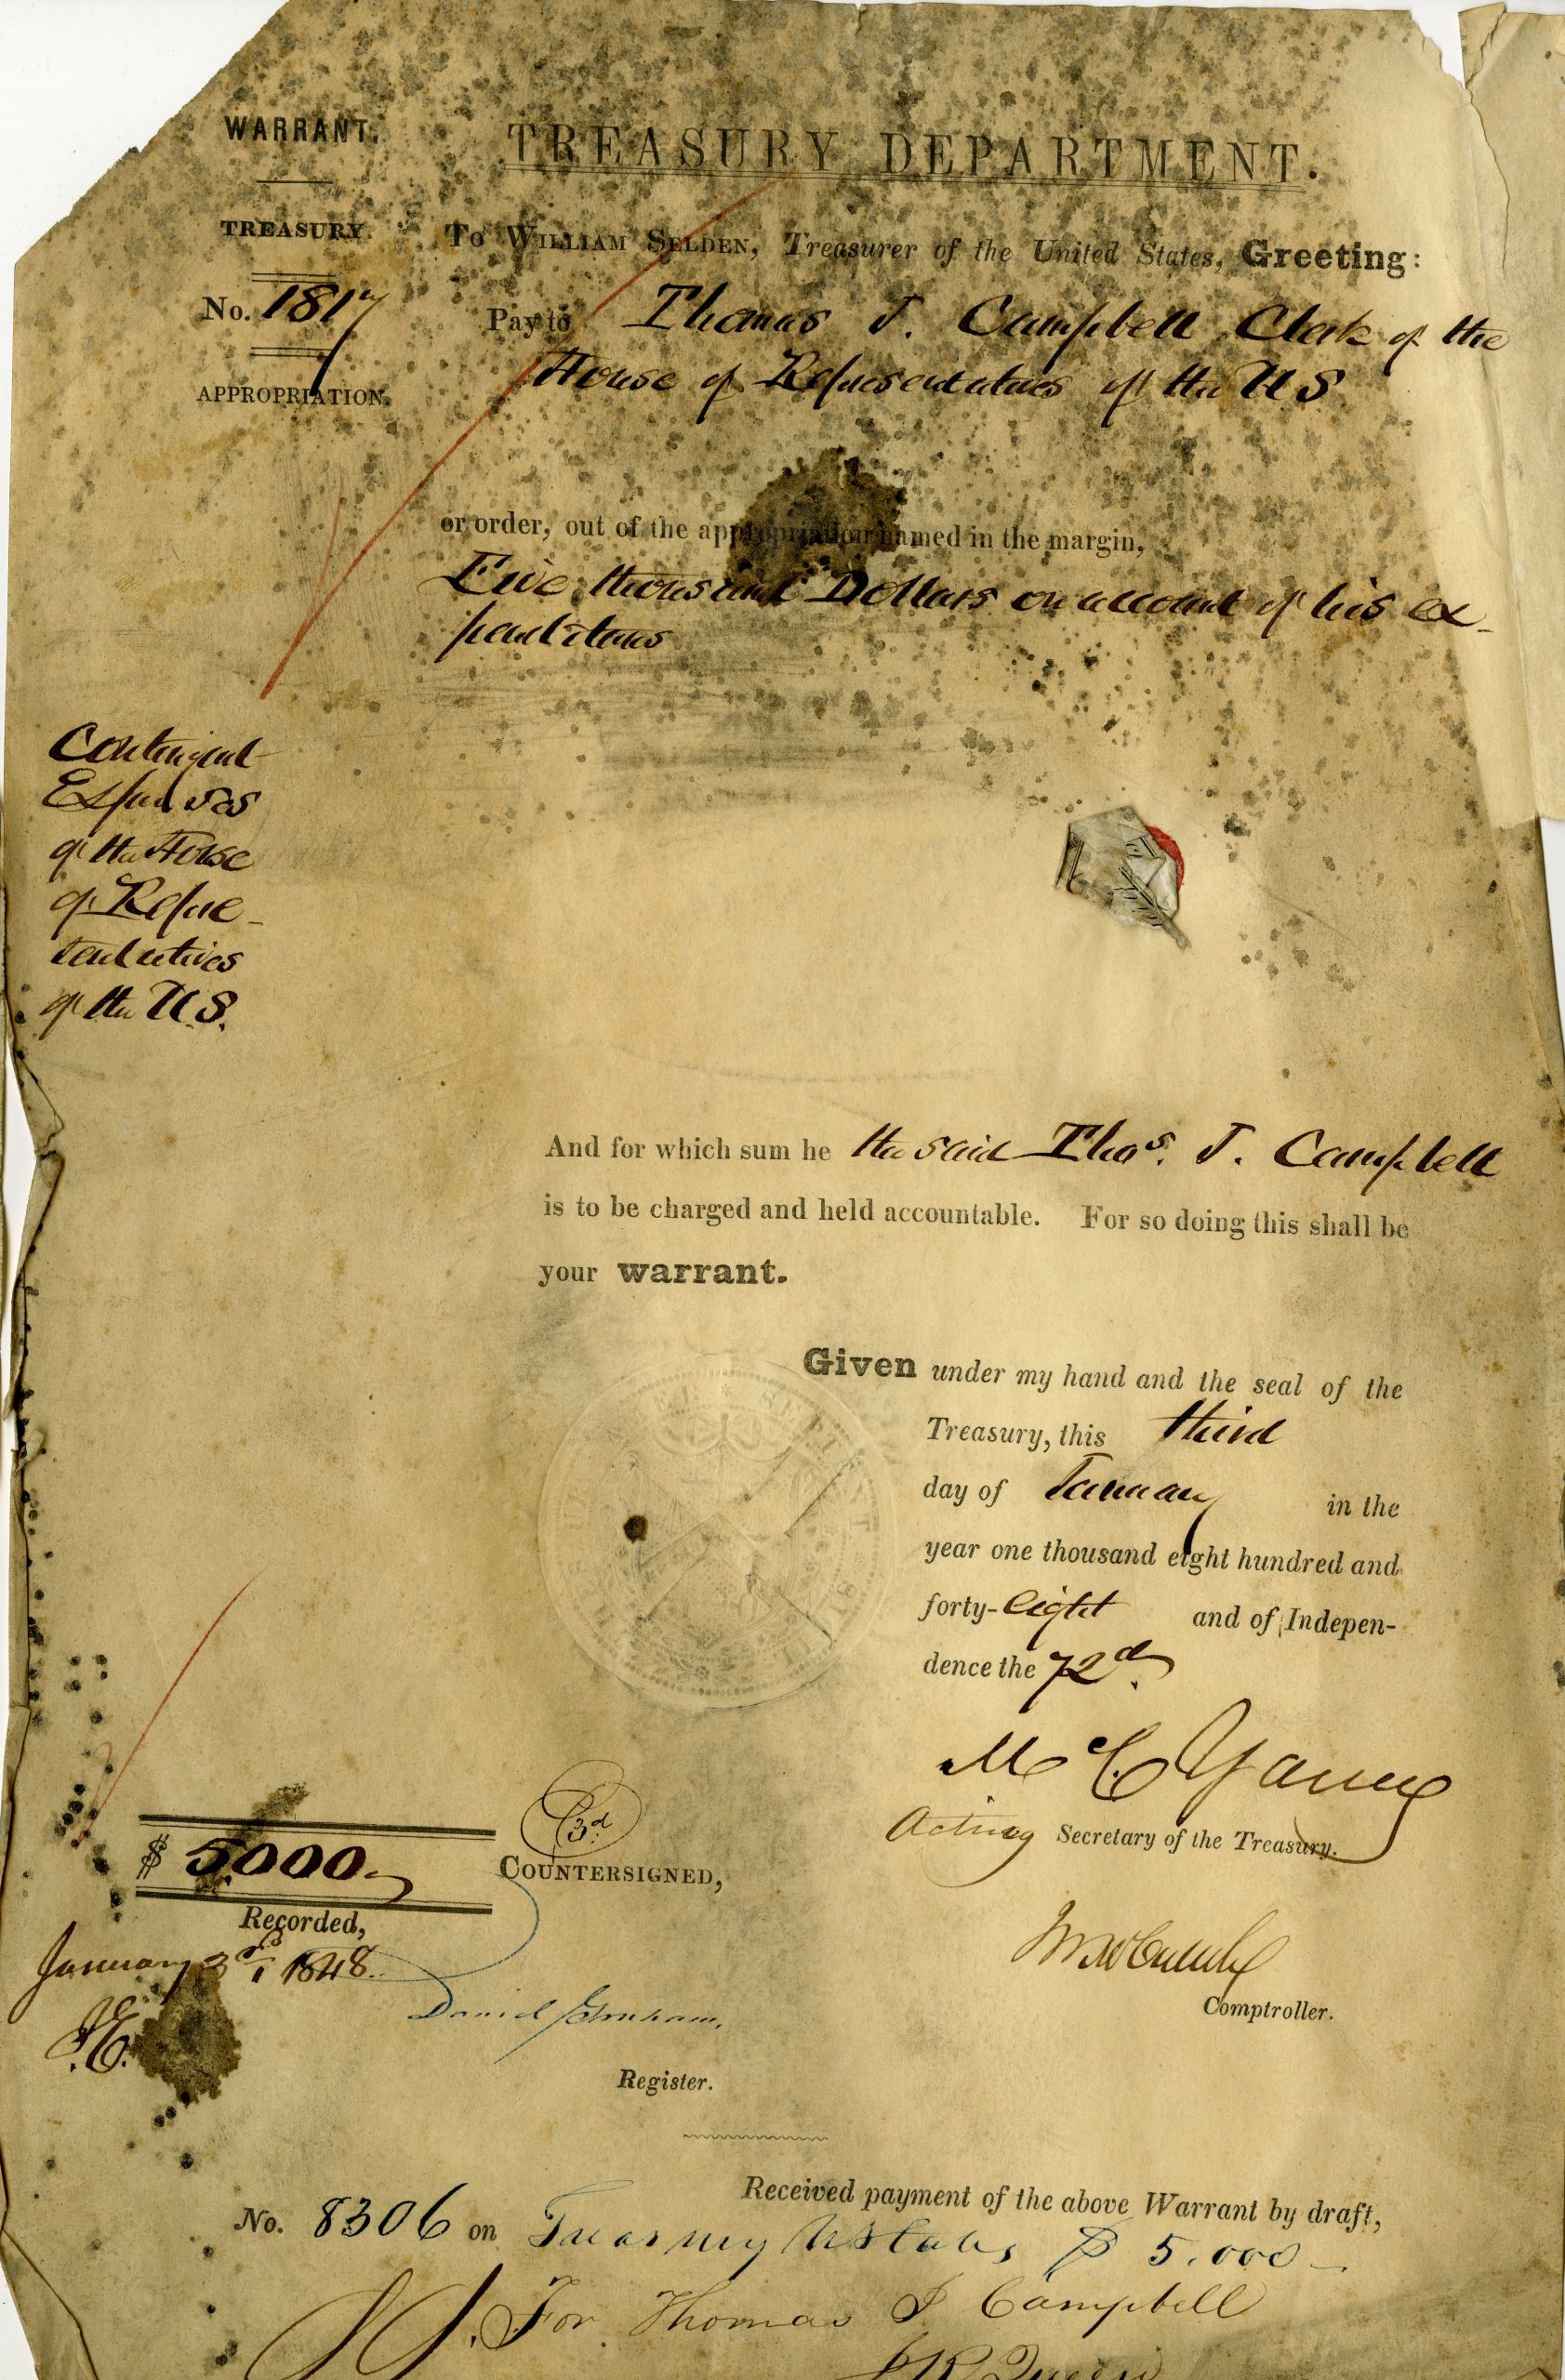 WARRANT.
TREASURY DEPARTMENT.
TREASURY.
To WILLIAM SELDEN, Treasurer of the United States, Greeting:
No. 1817
Pay to Thomas J. Campbell Clerk of the
House of Representatives of the U S
APPROPRIATION.
or order, out of the appropriation named in the margin,
Five thousand Dollars on account of his ex-
penditures
Contingent
Expenses
of the House
of Repre-
sentatives
of the U.S.
And for which sum he the said Thos. J. Campbell
is to be charged and held accountable. For so doing this shall be
your warrant.
Given under my hand and the seal of the
Treasury, this third
day of January in the
year one thousand eight hundred and
forty-eight and of Indepen-
dence the 72d.
M C Young
Acting Secretary of the Treasury.
$ 5000.
3d.
COUNTERSIGNED,
Recorded,
January 3rd, 1848.
J.E.
Comptroller.
Daniel Graham,
Register.
Received payment of the above Warrant by draft,
No. 8306 on Treasury U States $ 5.000
For Thomas J Campbell